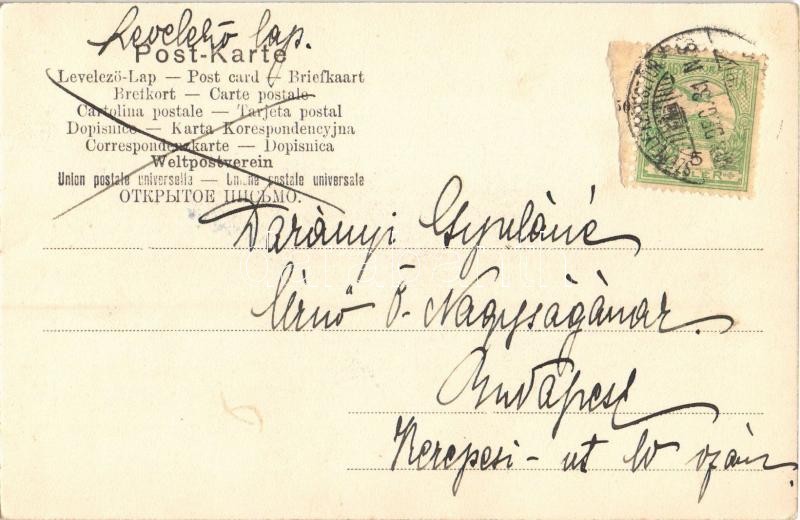 Levelező lap.
Post-Karte
Levelező-Lap — Post card — Briefkaart
Brefkort — Carte postale
Cartolina postale — Tarjeta postal
Dopisnice — Karta Korespondencyjna
Correspondenzkarte — Dopisnica
Weltpostverein
Union postale universella — Unione postale universale
ОТКРЫТОЕ ПИСЬМО.
Darányi Gyuláné
Úrnő Ő Nagyságának.
Budapest
Kerepesi-út